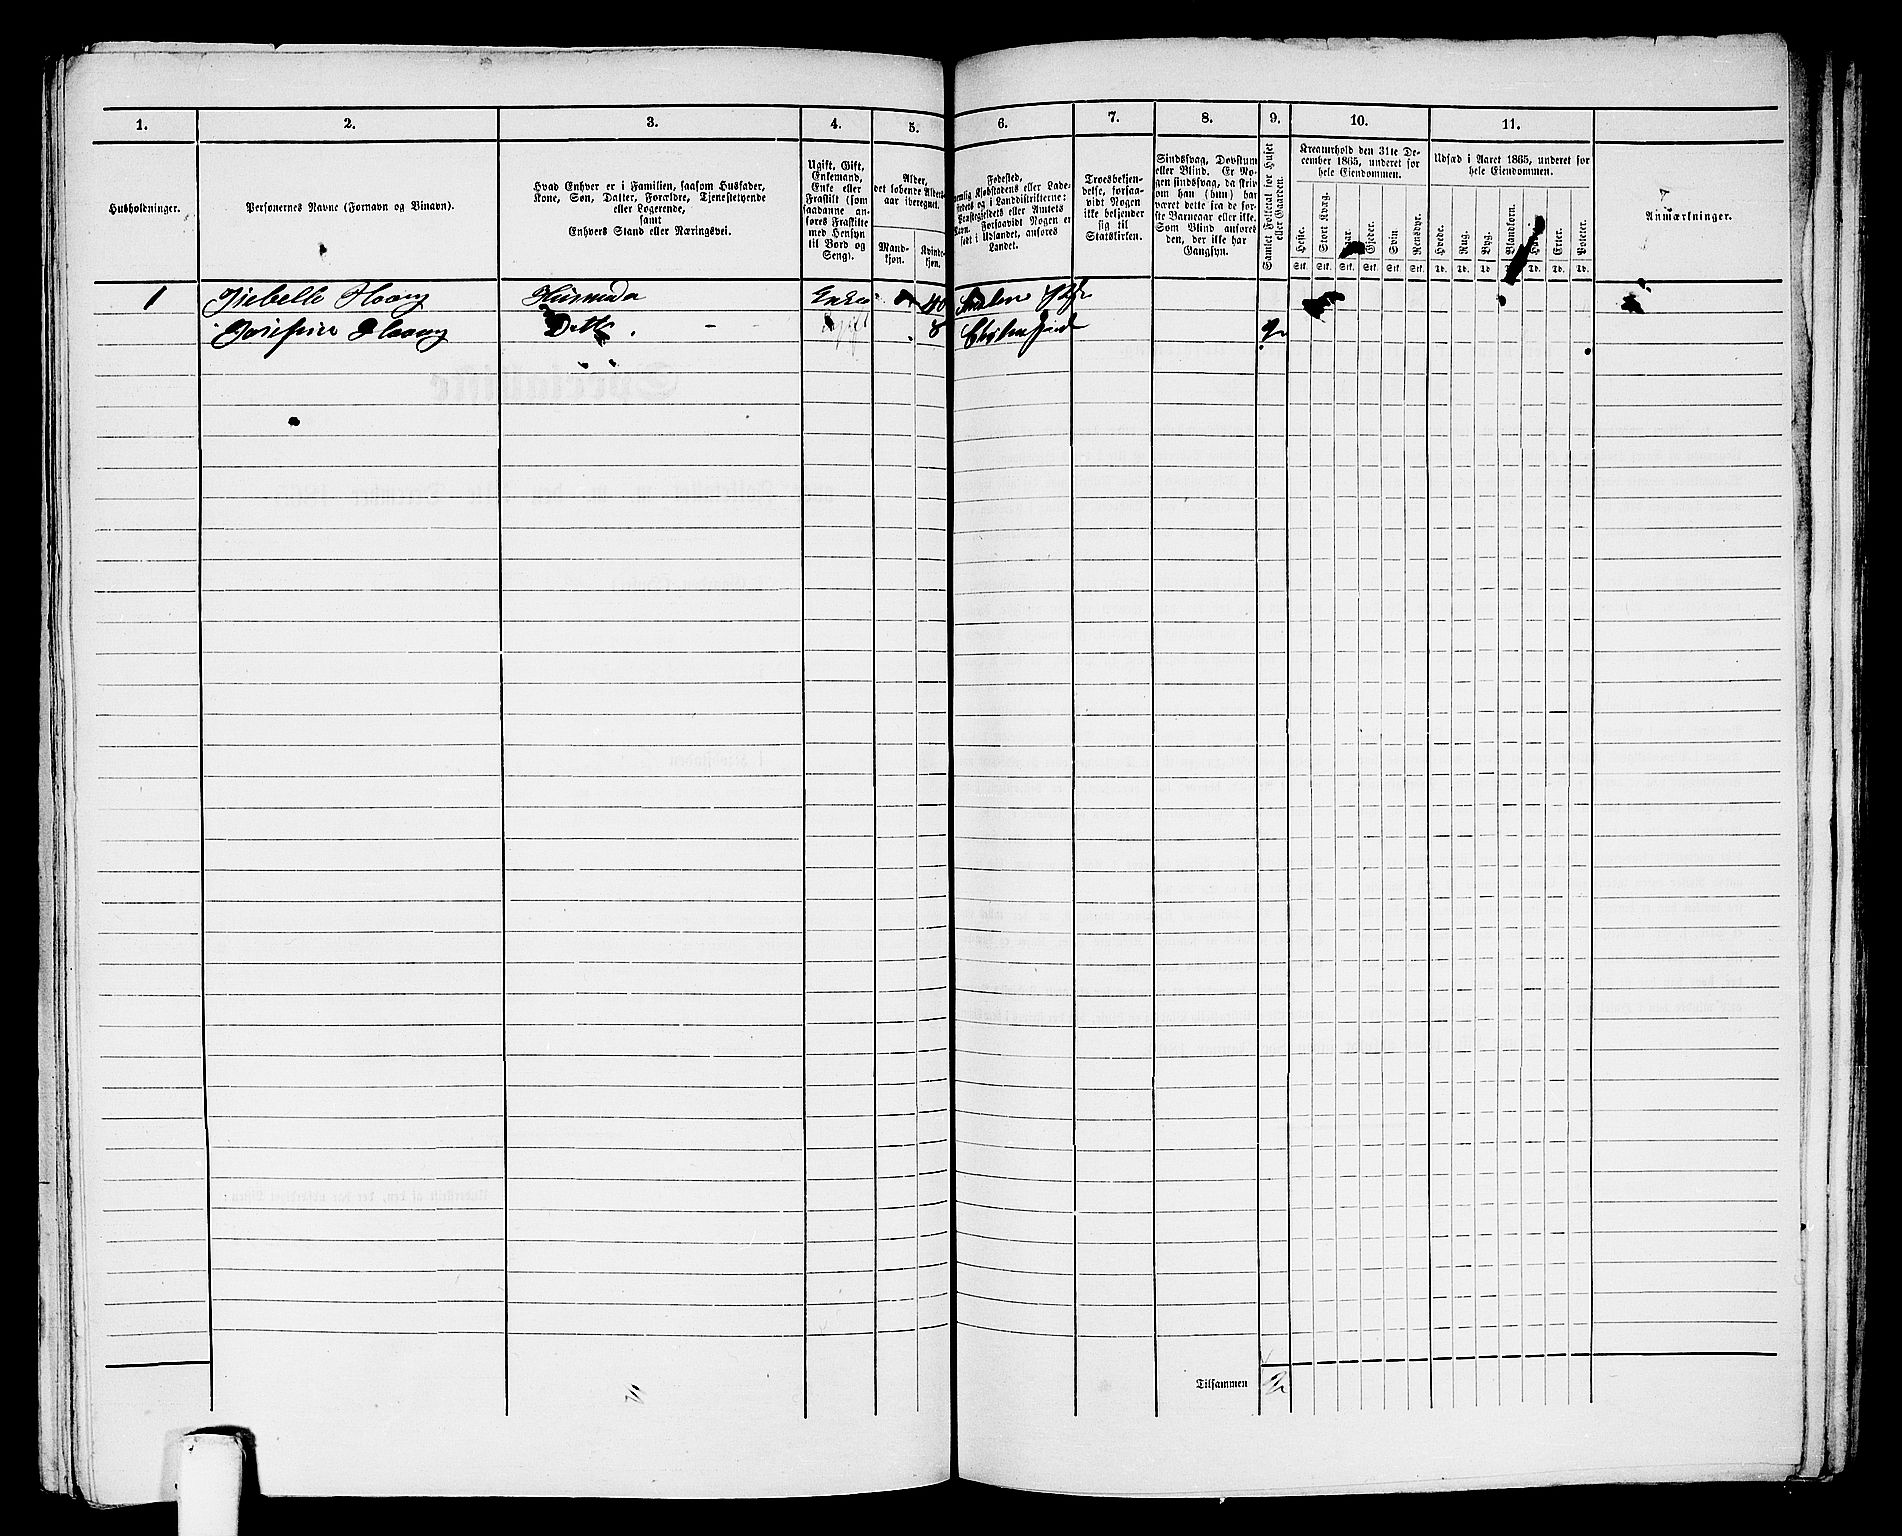 1. 2. 3. 4. 5. 6. 7. 8. 9. 10. 11.
Husholdninger.
Personernes Navne (Fornavn og Binavn).
Hvad Enhver er i Familien, saasom Husfader,
Kone, Søn, Datter, Forældre, Tjenestetyende
eller Logerende,
samt
Enhvers Stand eller Næringsvei.
Ugift, Gift,
Enkemand,
Enke eller
Fraskilt (som
saadanne an-
føres Fraskilte
med Hensyn
til Bord og
Seng).
Alder,
det løbende Alders-
aar iberegnet.
Mand-
kjøn.
Kvinde-
kjøn.
Fødested,
nemlig Kjøbstadens eller Lade-
stedets og i Landdistrikterne:
Præstegjeldets eller Amtets
Navn. Forsaavidt Nogen er
født i Udlandet, anføres
Landet.
Troesbekjen-
delse, forsaa-
vidt Nogen
ikke bekjender
sig til
Statskirken.
Sindssvag, Døvstum
eller Blind. Er No-
gen sindssvag, da skriv
om han (hun) har
været dette fra de før-
ste Barneaar eller ikke.
Som Blind anføres
den, der ikke har
Gangsyn.
Samlet Folketal for Huset
eller Gaarden.
Kreaturhold den 31te De-
cember 1865, underet for
hele Eiendommen.
Heste. Stort Kvæg. Gjeder. Svin. Rensdyr.
Stk. Stk. Stk. Stk. Stk. Stk.
Udsæd i Aaret 1865, underet for
hele Eiendommen.
Hvede. Rug. Byg. Blandkorn. Erter. Poteter.
Td. Td. Td. Td. Td. Td. Td.
Anmærkninger.
1 Isebelle Haavg Husmoder Enke 40
Josefine Haavg Datter 8 2
Tilsammen 2